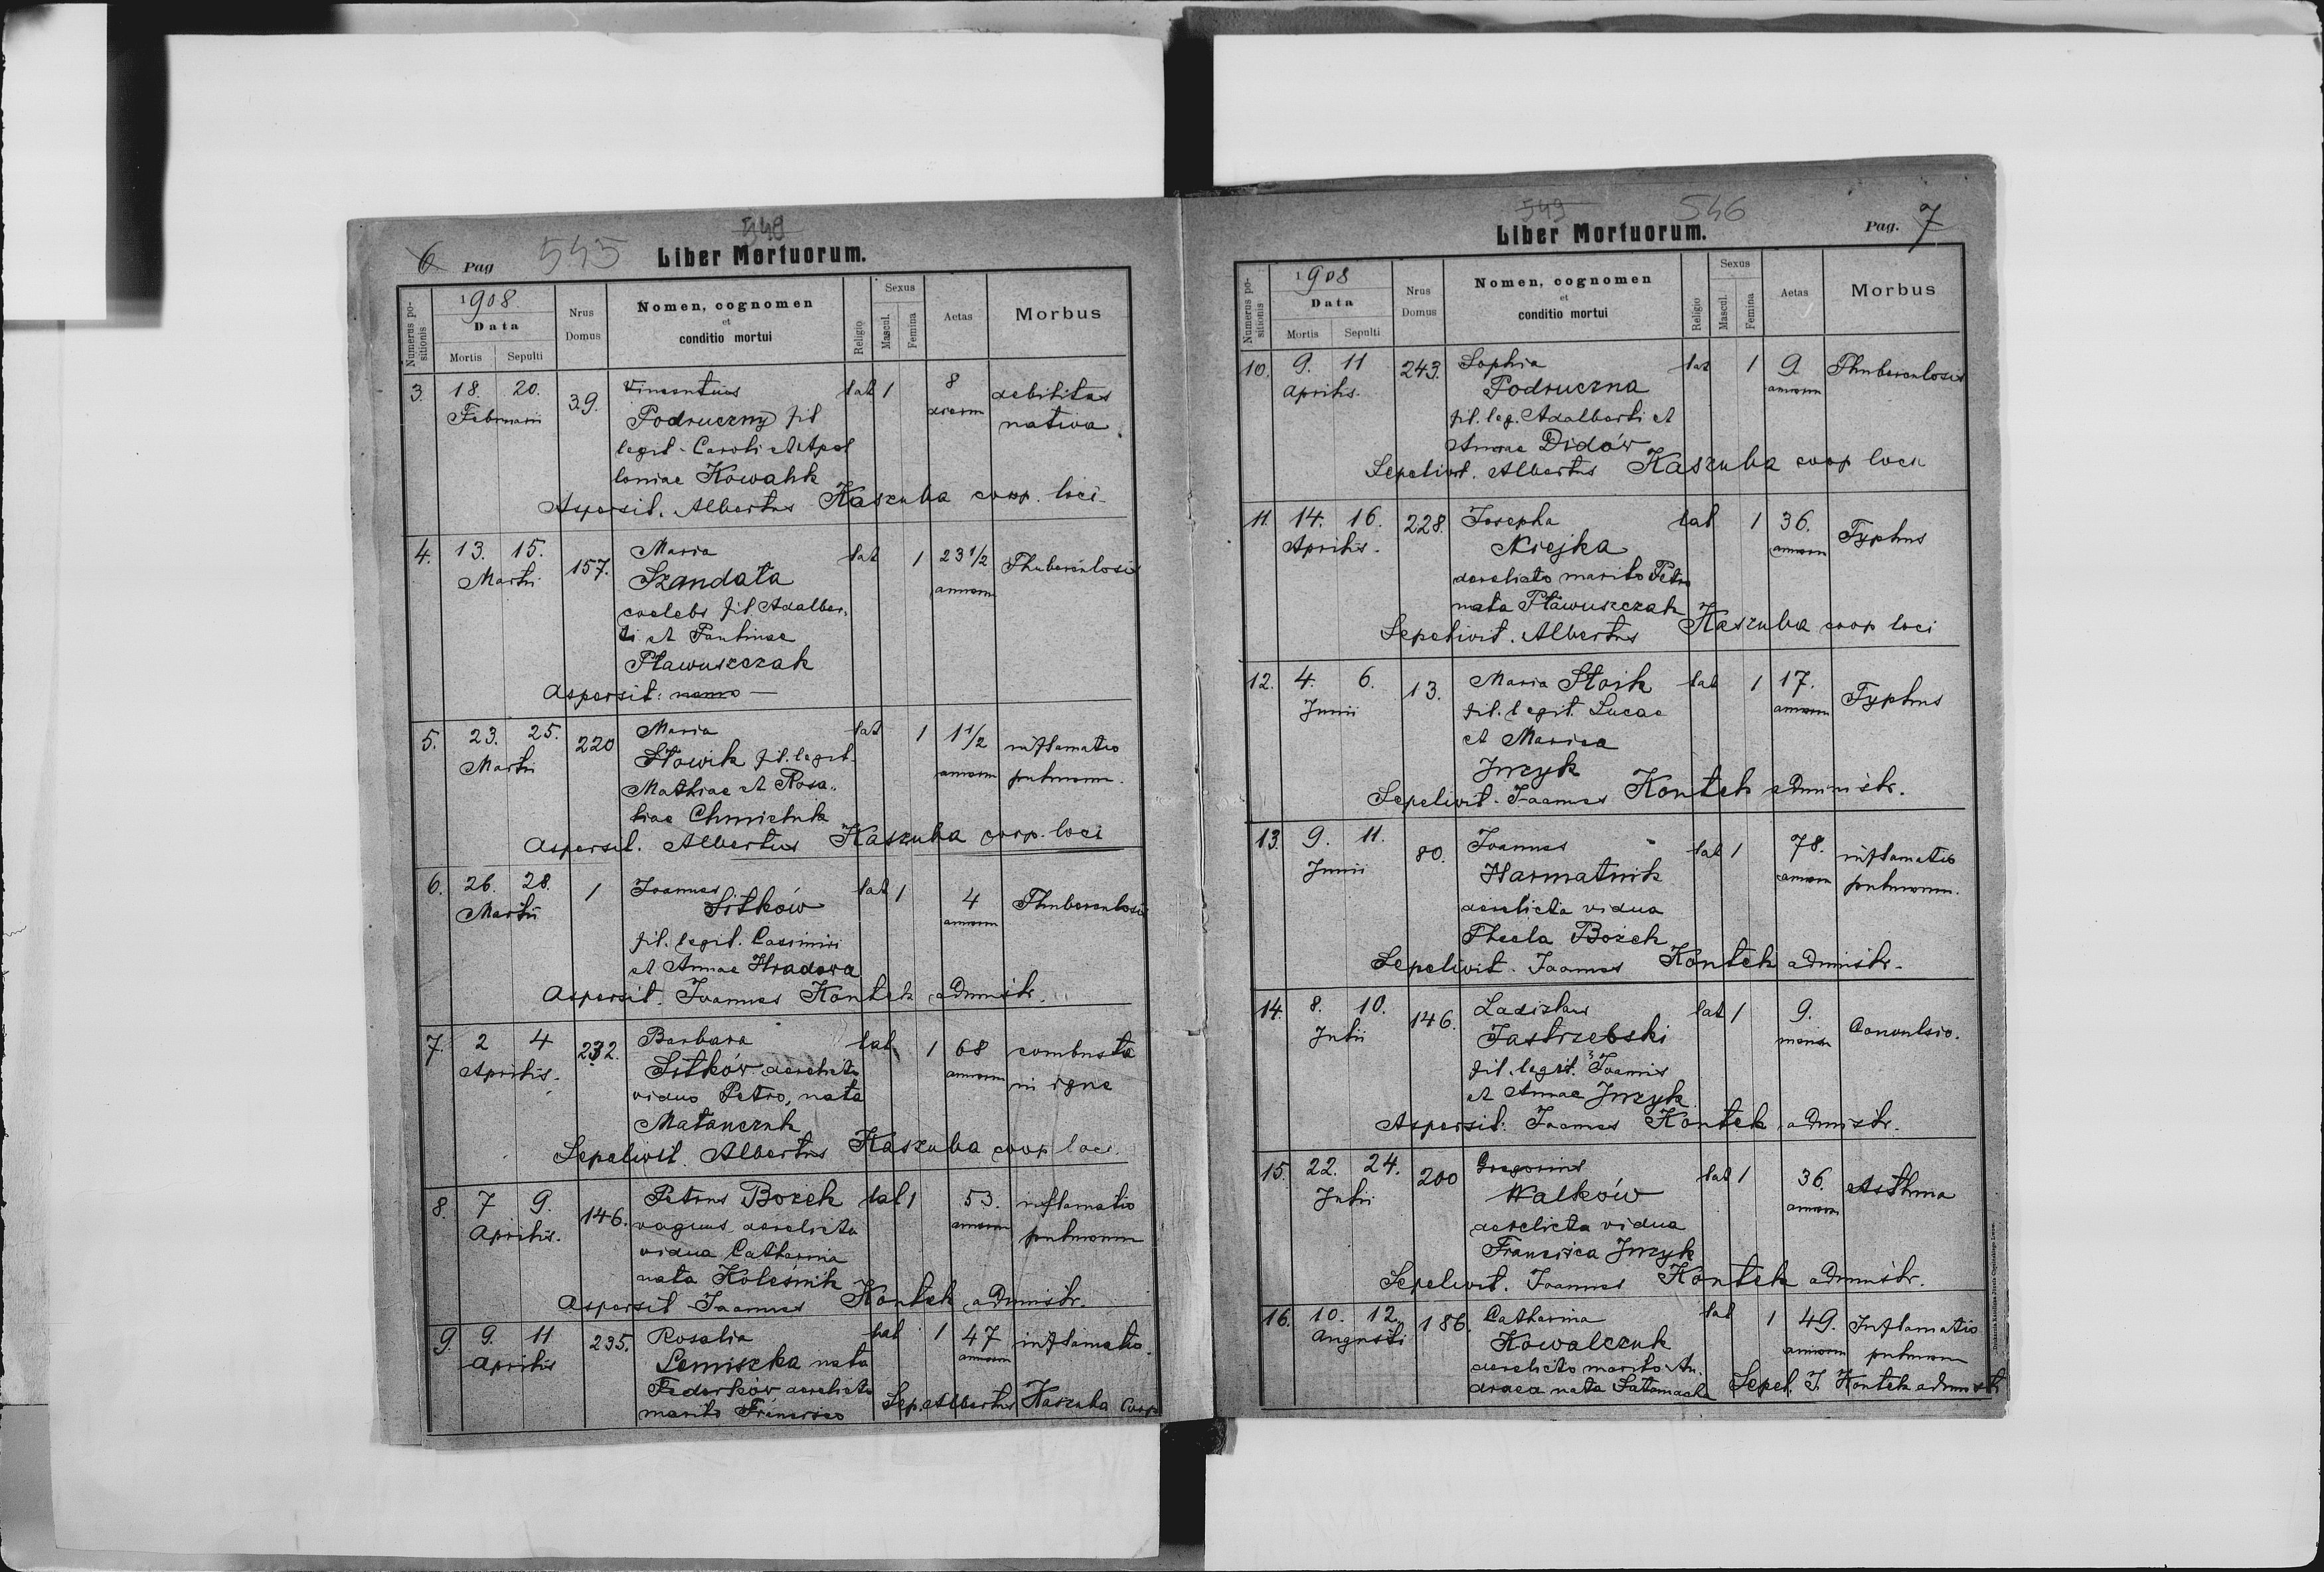 6 Pag 545 548
Liber Mortuorum.
Numerus positionis
1908
Data
Mortis Sepulti
Nrus Domus
Nomen, cognomen
et
conditio mortui
Religio
Sexus
Mascul. Femina
Aetas
Morbus
3. 18. 20. 39. Vincentius lat 1 8 debilitas
Februarii Podruczny fil dierum nativa
legit. Caroli et Apol
loniae Kowalik
Aspersit. Albertus Kaszuba coop. loci
4. 13. 15. 157. Maria lat 1 23 1/2 Thuberculosis
Martii Szandala annorum
coelebs fil. Adalber-
ti et Paulinae
Pławuszczak
Aspersit: nemo —
5. 23. 25. 220 Maria lat 1 1 1/2 inflamatio
Martii Słowik fil. legit. annorum pulmonum.
Mathiae et Rosa-
liae Chmieluk
Aspersit. Albertus Kaszuba coop. loci
6. 26. 28. 1 Joannes lat 1 4 Thuberculosis
Martii Sitków annorum
fil. legit. Casimiri
et Annae Hradowa
Aspersit. Joannes Kontek administr.
7. 2 4 232. Barbara lat 1 68 combusta
Aprilis. Sitków derelicto annorum in igne
viduo Petro, nata
Matanczuk
Sepelivit. Albertus Kaszuba coop loci
8. 7 9. 146. Petrus Bozek lat 1 53. inflamatio
Aprilis. vagus derelicta annorum pulmonum
vidua Catharina
nata Koleśnik
Aspersit Joannes Kontek administr.
9. 9. 11 235. Rosalia lat 1 47 inflamatio.
Aprilis Lemiszka nata annorum
Fedorków derelicto
marito Francisco Sep. Albertus Kaszuba Coop
549 546
Liber Mortuorum.
Pag. 7
Numerus positionis
1908
Data
Mortis Sepulti
Nrus Domus
Nomen, cognomen
et
conditio mortui
Religio
Sexus
Mascul. Femina
Aetas
Morbus
10. 9. 11 243. Sophia lat 1 9 Thuberculosis
Aprilis. Podruczna annorum
fil. leg. Adalberti et
Annae Didów
Sepelivit. Albertus Kaszuba coop loci
11. 14. 16. 228. Josepha lat 1 36. Typhus
Aprilis. Niejka annorum
derelicto marito Petro
nata Pławuszczak
Sepelivit. Albertus Kaszuba coop loci
12. 4. 6. 13. Maria Stoik lat 1 17. Typhus
Junii fil. legit. Lucae annorum
et Maria
Jrzyk
Sepelivit. Joannes Kontek administr.
13. 9. 11. 80. Joannes lat 1 78. inflamatio
Junii Harmatnik annorum pulmonum.
derelicta vidua
Thecla Bozek
Sepelivit. Joannes Kontek administr.
14. 8. 10. 146. Ladislaus lat 1 9. Convulsio.
Julii Jastrzebski mensium
fil. legit. Joannis
et Annae Jrzyk
Aspersit: Joannes Kontek administr.
15. 22. 24. 200 Gregorius lat 1 36. Asthma
Julii Walków annorum
derelicta vidua
Francisca Jrzyk
Sepelivit. Joannes Kontek administr.
16. 10. 12. 186. Catharina lat 1 49. Inflamatio
Augusti Kowalczuk annorum pulmonum
derelicto marito An.
draea nata Satamacha Sepel. J. Kontek administr